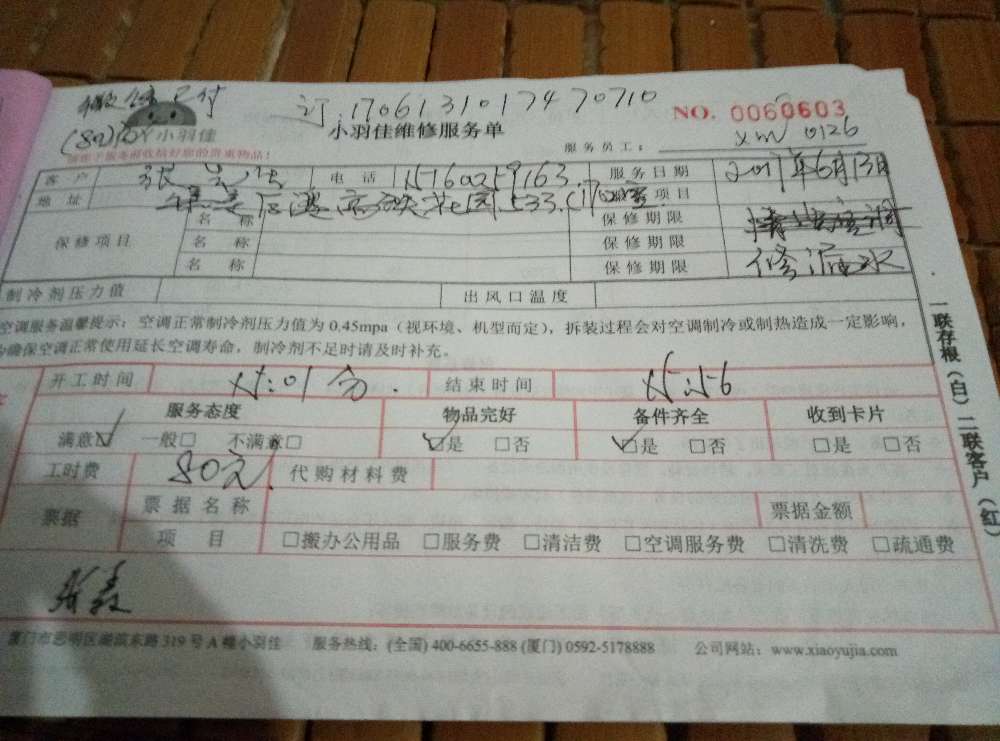 微信已付 订:1706131017470710
NO. 0060603
(80) 小羽佳 小羽佳维修服务单
服务员工: xm 0126
客户 张 电话 15160259163 服务日期 2017年6月13日
地址 533. 服务项目
保修项目 名称 保修期限
名称 保修期限
名称 保修期限 修漏水
制冷剂压力值 出风口温度
空调服务温馨提示:空调正常制冷剂压力值为0.45mpa(视环境、机型而定),拆装过程会对空调制冷或制热造成一定影响,
为确保空调正常使用延长空调寿命,制冷剂不足时请及时补充。
开工时间 15:01分. 结束时间 15:56
服务态度 物品完好 备件齐全 收到卡片
满意☑ 一般□ 不满意□ ☑是 □否 ☑是 □否 □是 □否
工时费 80元 代购材料费
票据 票据名称 票据金额
项目 □搬办公用品 □服务费 □清洁费 □空调服务费 □清洗费 □疏通费
一联存根(白)二联客户(红)
厦门市思明区湖滨东路319号A幢小羽佳 服务热线:(全国)400-6655-888(厦门)0592-5178888 公司网站:www.xiaoyujia.com